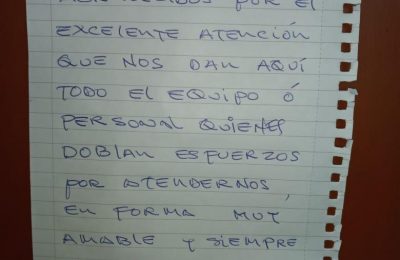 AGRADECIDOS POR EL
EXCELENTE ATENCIÓN
QUE NOS DAN AQUÍ
TODO EL EQUIPO Ó
PERSONAL QUIENES
DOBLAN ESFUERZOS
POR ATENDERNOS,
EN FORMA MUY
AMABLE Y SIEMPRE